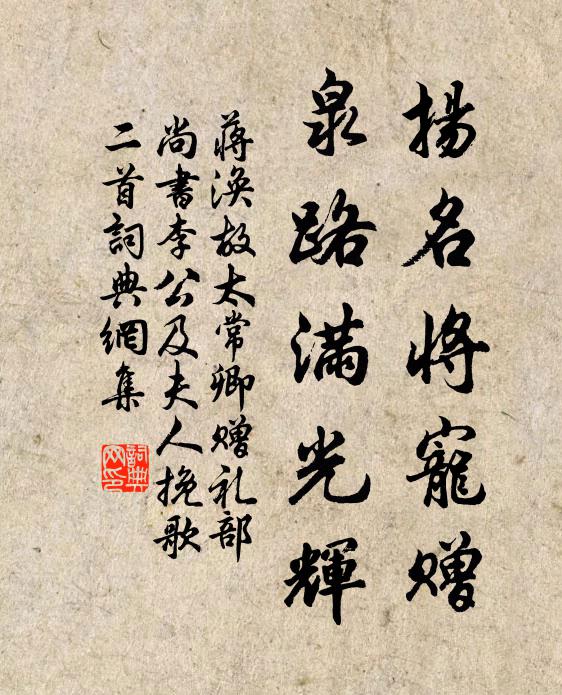 揚名將寵贈
泉路滿光輝
蔣渙故太常卿贈礼部
尚書李公及夫人挽歌
二首詞典網集
詞典
网印